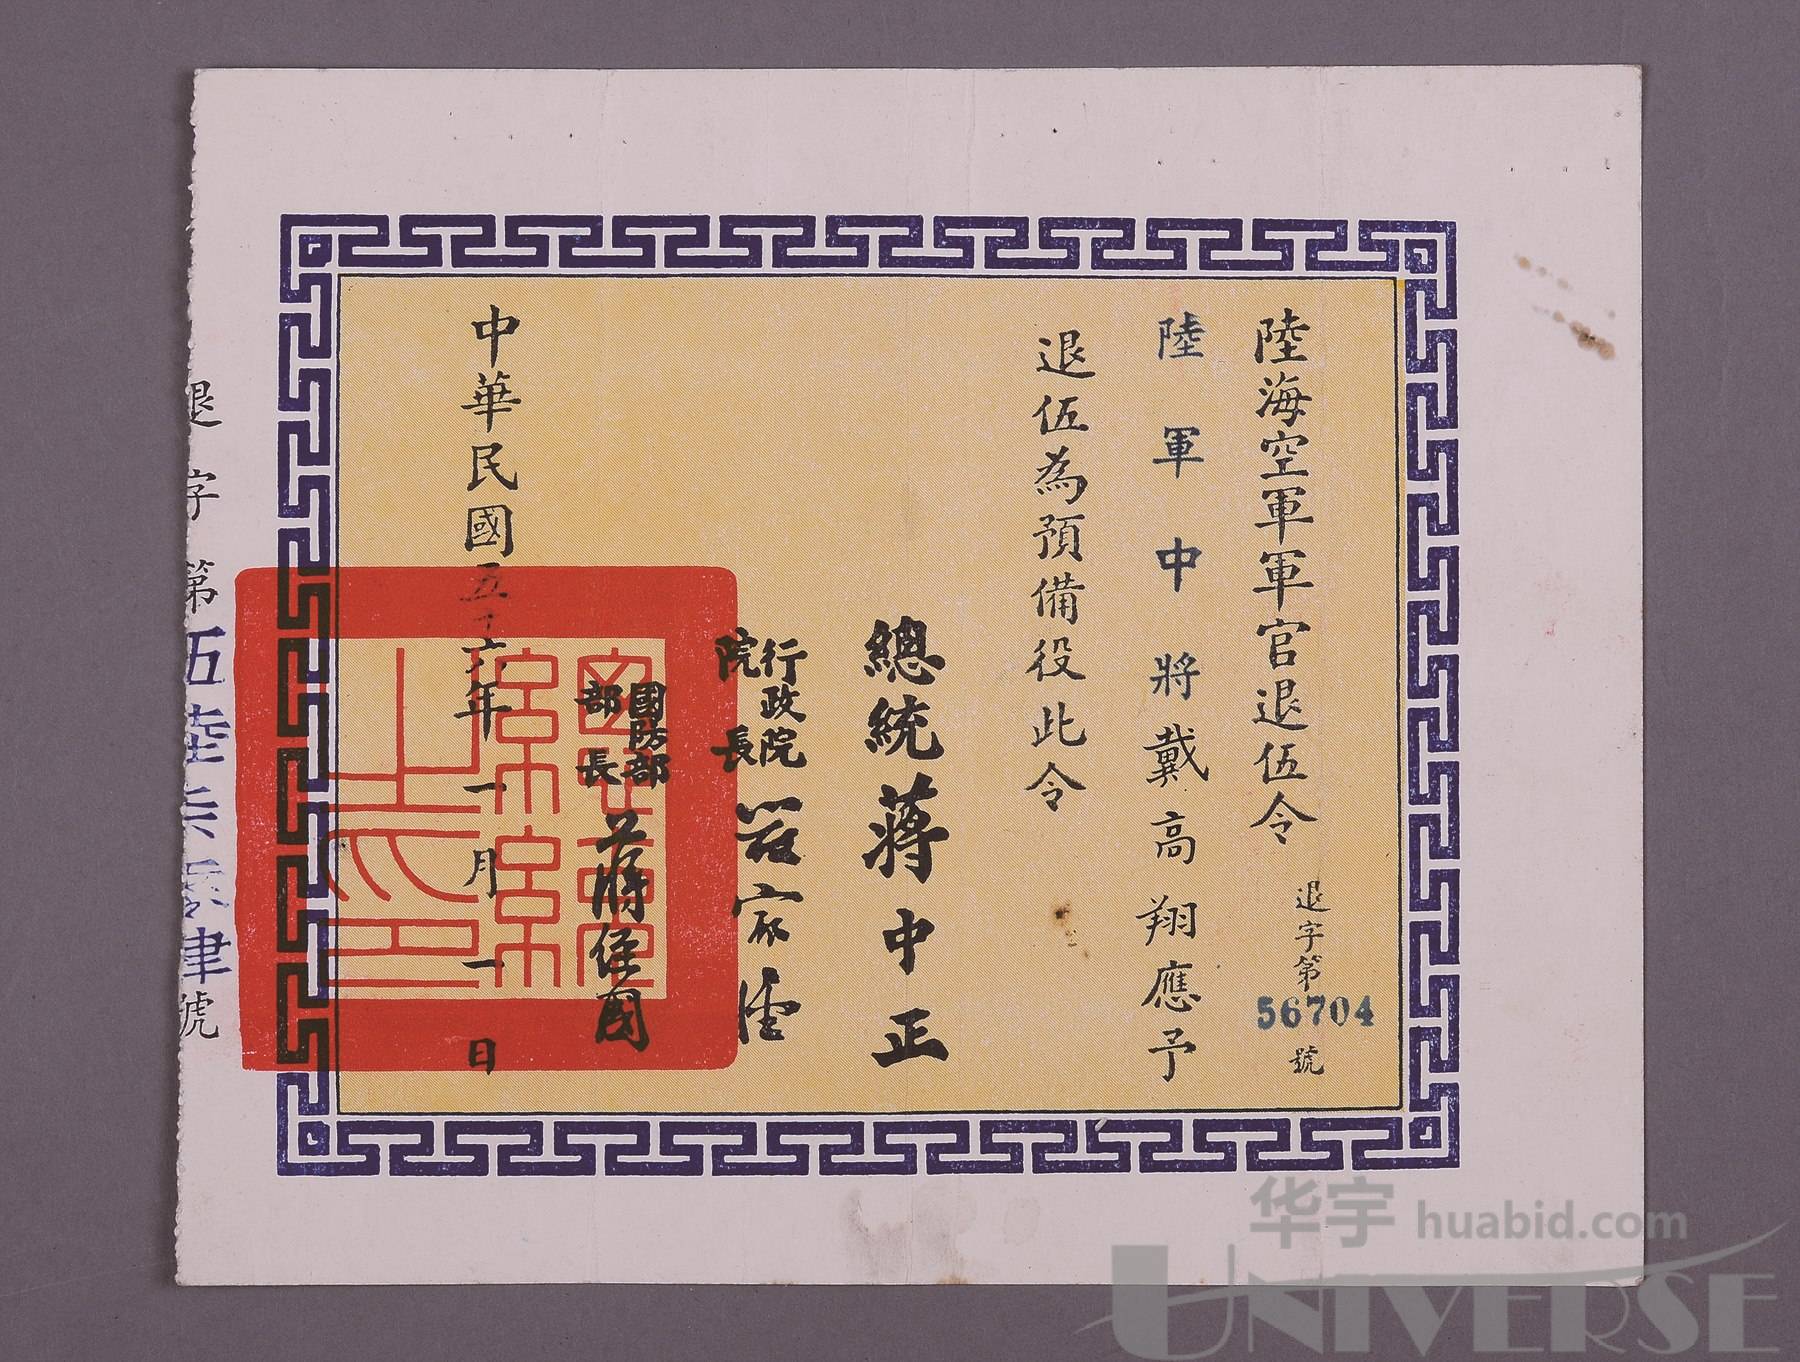 陸海空軍軍官退伍令
退字第56704號
陸軍中將戴高翔應予
退伍為預備役此令
總統蔣中正
行政院院長嚴家淦
國防部部長蔣經國
中華民國五十六年一月一日
退字第伍陸柒零肆號
华宇 huabid.com
UNIVERSE